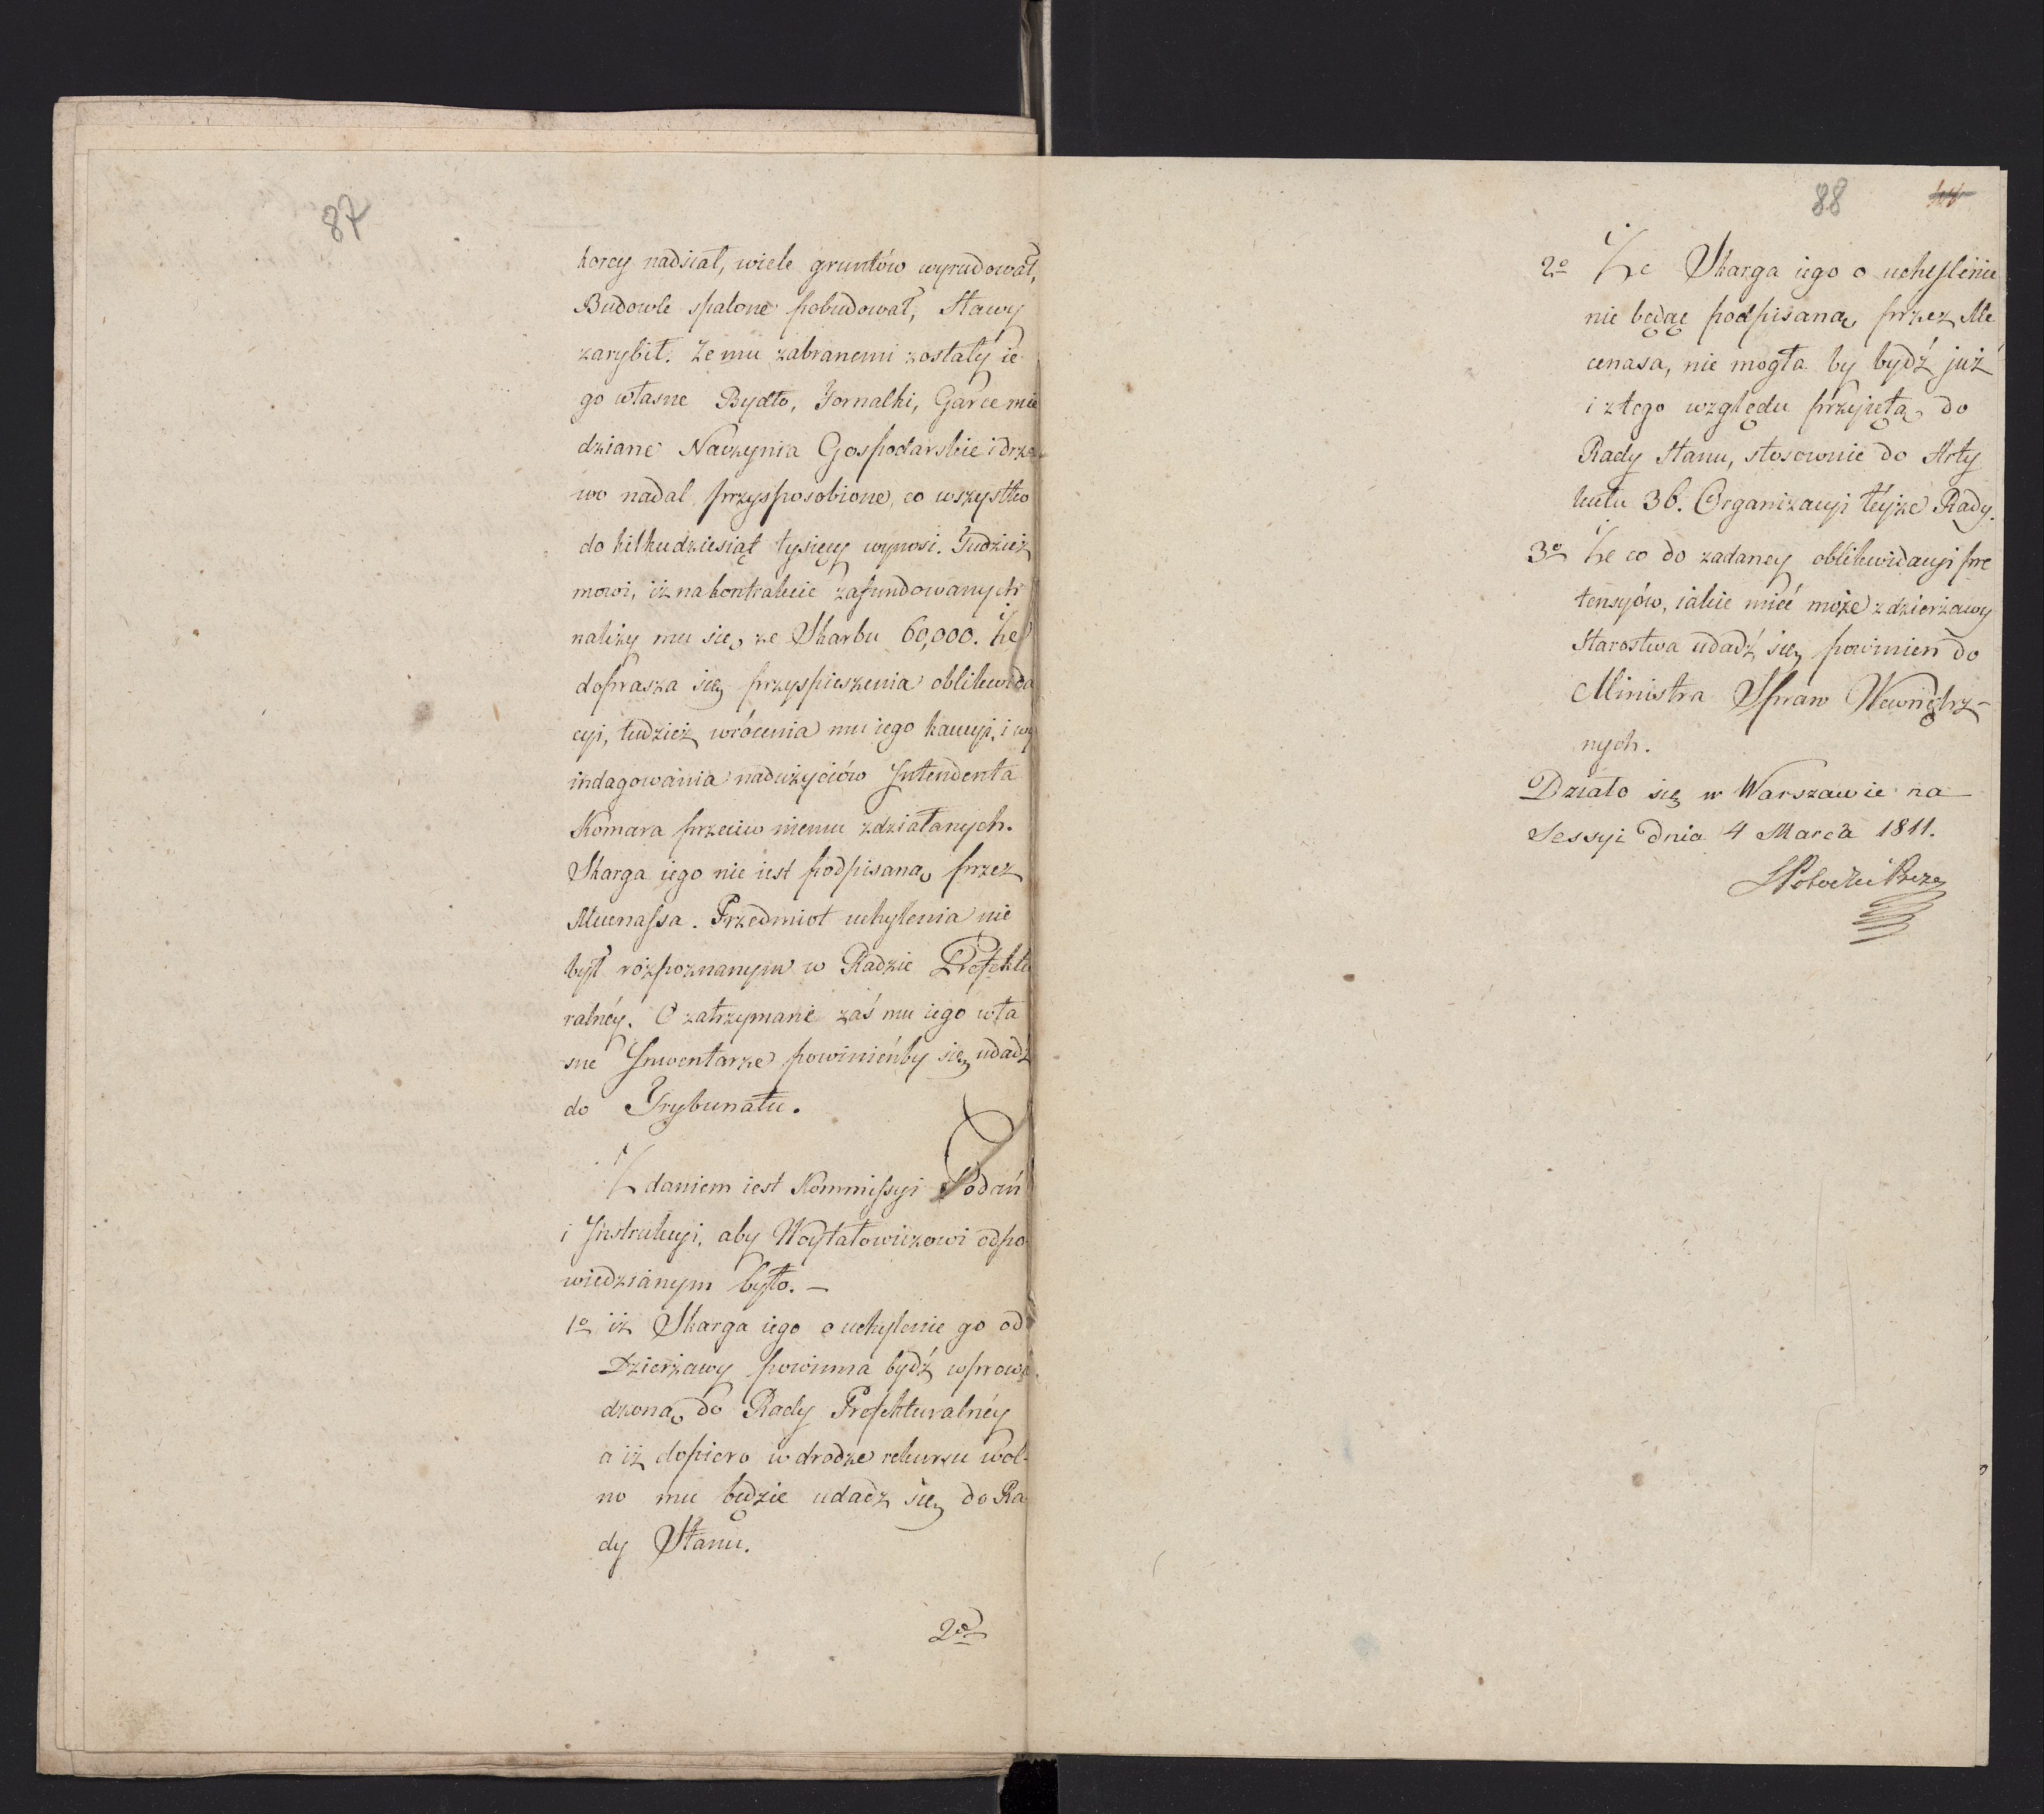 87
korcy nadsiał, wiele gruntów wyrudował,
Budowle spalone pobudował, Stawy
zarybił. Że mu zabranemi zostały ie
go własne Bydło, Fornalki, Garce mie
dziane Naczynia Gospodarskie i drze
wo nadal przysposobione, co wszystko
do kilkudziesiąt tysięcy wynosi. Tudzież
mowi, iż na kontrakcie zafundowanych
należy mu się ze Skarbu 60,000. Że
doprasza się przyspieszenia oblikwida
cyi, tudzież wrócenia mu iego kaucyi, i wy
indagowania nadużyciów Intendenta
Komara przeciw niemu zdziałanych.
Skarga iego nie iest podpisaną przez
Mecenassa. Przedmiot uchylenia nie
był rozpoznanym w Radzie Prefektu
ralnéy. O zatrzymane zaś mu iego wła
sne Inwentarze powinienby się udadź
do Trybunału.
Zdaniem iest Kommissyi Podań
i Instrukcyi, aby Woytatowiczowi odpo
wiedzianym było. –
1o iż Skarga iego o uchylenie go od
Dzierżawy powinna bydź wprowa
dzoną do Rady Prefekturalnéy
a iż dopiero w drodze rekursu wol-
no mu będzie udadź się do Ra
dy Stanu.
2o
88
2o Że Skarga iego o uchylenie
nie będąc podpisaną przez Me
cenasa, nie mogła by bydź już
i z tego względu przyjętą do
Rady Stanu, stosownie do Arty
kułu 36. Organizacyi téyże Rady.
3o Że co do żądaney oblikwidacyi pre
tensyów, iakie mieć może z dzierżawy
Starostwa udadź się powinien do
Ministra Spraw Wewnętrz-
nych.
Działo się w Warszawie na
Sessyi dnia 4 Marca 1811.
SPotocki Prezes